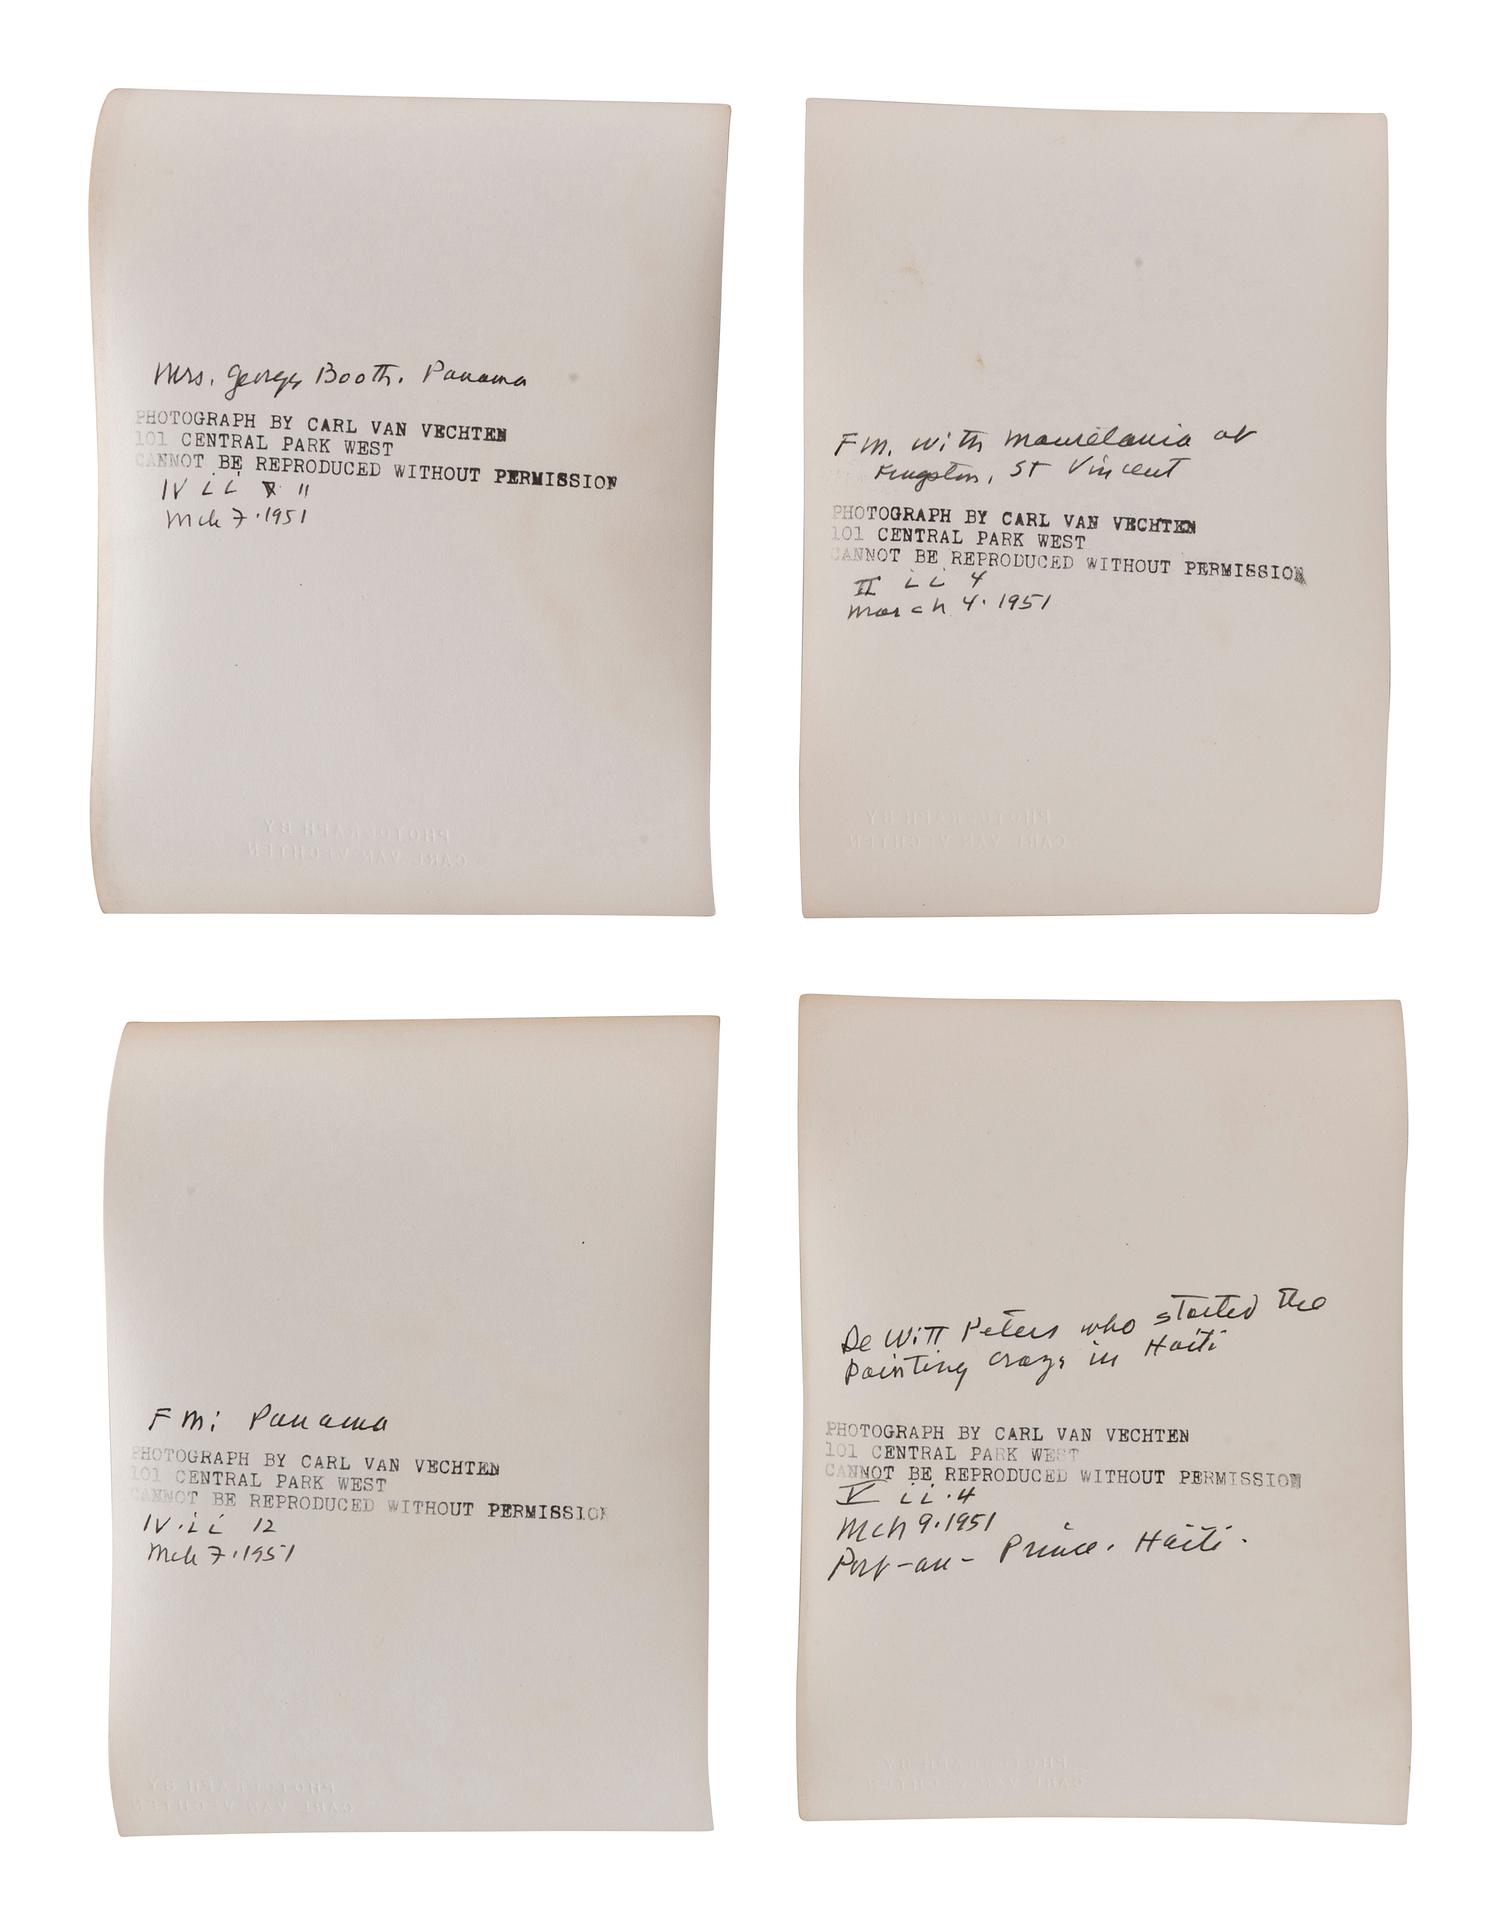 Mrs. George Booth. Panama
PHOTOGRAPH BY CARL VAN VECHTEN
101 CENTRAL PARK WEST
CANNOT BE REPRODUCED WITHOUT PERMISSION
IV ii 11
Mch 7.1951
PHOTOGRAPH BY
CARL VAN VECHTEN
FM. with Mauretania at
Kingston, St Vincent
PHOTOGRAPH BY CARL VAN VECHTEN
101 CENTRAL PARK WEST
CANNOT BE REPRODUCED WITHOUT PERMISSION
II ii 4
March 4.1951
PHOTOGRAPH BY
CARL VAN VECHTEN
FM: Panama
PHOTOGRAPH BY CARL VAN VECHTEN
101 CENTRAL PARK WEST
CANNOT BE REPRODUCED WITHOUT PERMISSION
IV.ii 12
Mch 7.1951
PHOTOGRAPH BY
CARL VAN VECHTEN
De Witt Peters who started the
painting craze in Haiti
PHOTOGRAPH BY CARL VAN VECHTEN
101 CENTRAL PARK WEST
CANNOT BE REPRODUCED WITHOUT PERMISSION
V ii.4
Mch 9.1951
Port-au-Prince. Haiti.
PHOTOGRAPH BY
CARL VAN VECHTEN